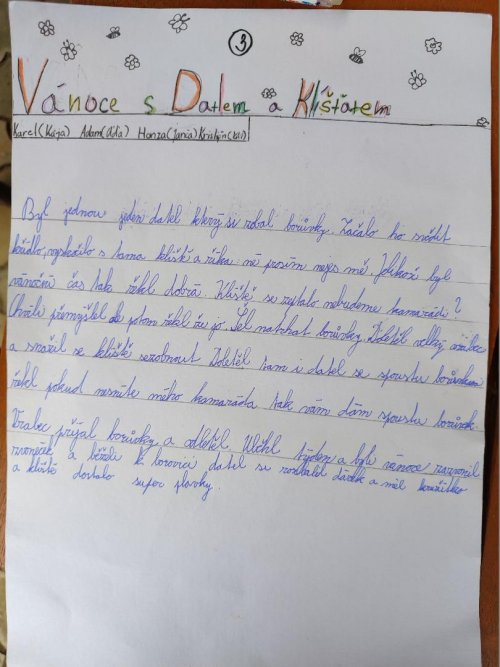 3
Vánoce s Datlem a Klíšťátem
Karel(Kája) Adam(Áďa) Honza(Jania)
Byl jednou jeden datel který se robal borůvky. Začalo ho svědit
křídlo, vyskočilo s tama klíště a říka né prosím nejes mě. Jelikož byl
vánoční čas tak řekl dobrá. Klíště se zeptalo nebudeme kamarádi?
Chvíli přemýšlel ale potom řekl že jo. Šel natrhat borůvky. Přiletěl velký vrabec
a snažil se klíště sezobnout Doletěl tam i datel se spoustu borůvkam
řekl pokud nesníte mého kamaráda tak vám dám spoustu borůvek.
Vrabec přijal borůvky a odletěl Utekl týden a byli vánoce zazvonil
zvoneček a běželi k borovici datel si rozbalil dárek a měl
a klíště dostalo super plavky.